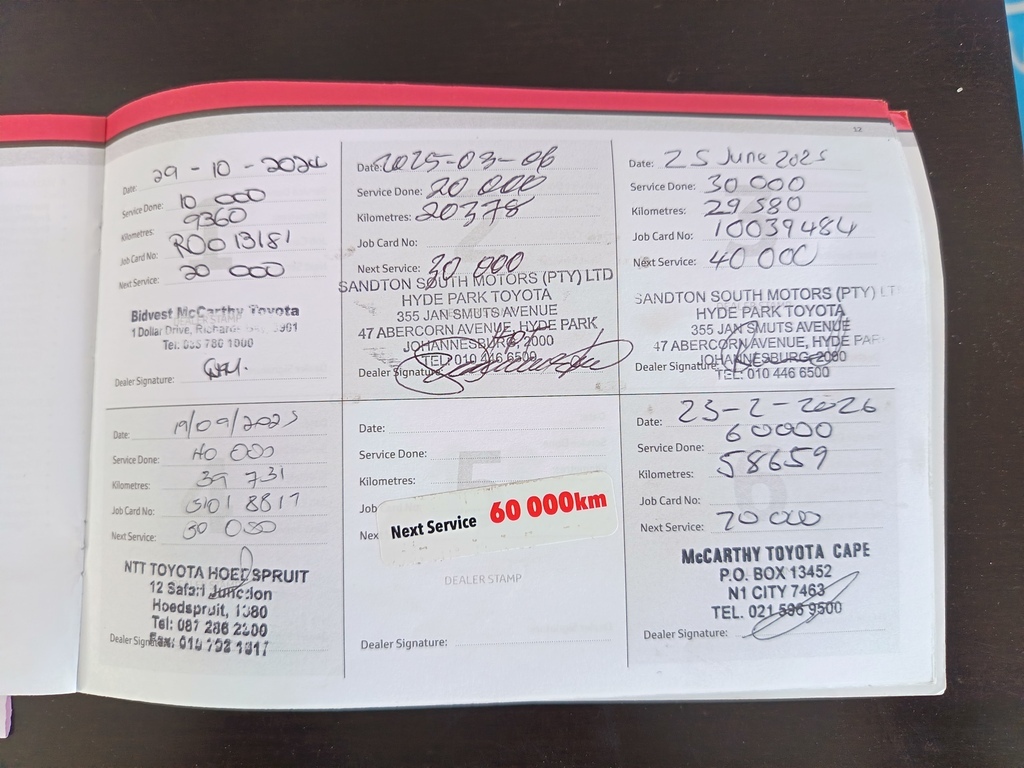 12
Date: 29-10-2024
Service Done: 10 000
Kilometres: 9360
Job Card No: R0013181
Next Service: 20 000
Bidvest McCarthy Toyota
1 Dollar Drive, Richards
Tel: 035 780 1000
Dealer Signature:
Date: 2025-03-06
Service Done: 20 000
Kilometres: 20378
Job Card No:
Next Service: 30 000
SANDTON SOUTH MOTORS (PTY) LTD
HYDE PARK TOYOTA
355 JAN SMUTS AVENUE
47 ABERCORN AVENUE, HYDE PARK
JOHANNESBURG, 2000
TEL: 010 446 6500
Dealer Signature
Date: 25 June 2025
Service Done: 30 000
Kilometres: 29 580
Job Card No: 10039484
Next Service: 40 000
SANDTON SOUTH MOTORS (PTY) LT
HYDE PARK TOYOTA
355 JAN SMUTS AVENUE
47 ABERCORN AVENUE, HYDE PAR
JOHANNESBURG, 2000
TEL: 010 446 6500
Dealer Signature
Date: 19/09/2025
Service Done: 40 000
Kilometres: 39 731
Job Card No:
Next Service: 50 000
NTT TOYOTA HOEDSPRUIT
12 Safari Junction
Hoedspruit, 1380
Tel: 087 286 2200
Fax:
Dealer
Date:
Service Done:
Kilometres:
Job
Nex
Next Service 60 000km
5
DEALER STAMP
Dealer Signature:
Date: 23-2-2026
Service Done: 60000
Kilometres: 58659
Job Card No:
Next Service: 70 000
6
McCARTHY TOYOTA CAPE
P.O. BOX 13452
N1 CITY 7463
TEL. 021 596 9500
Dealer Signature: